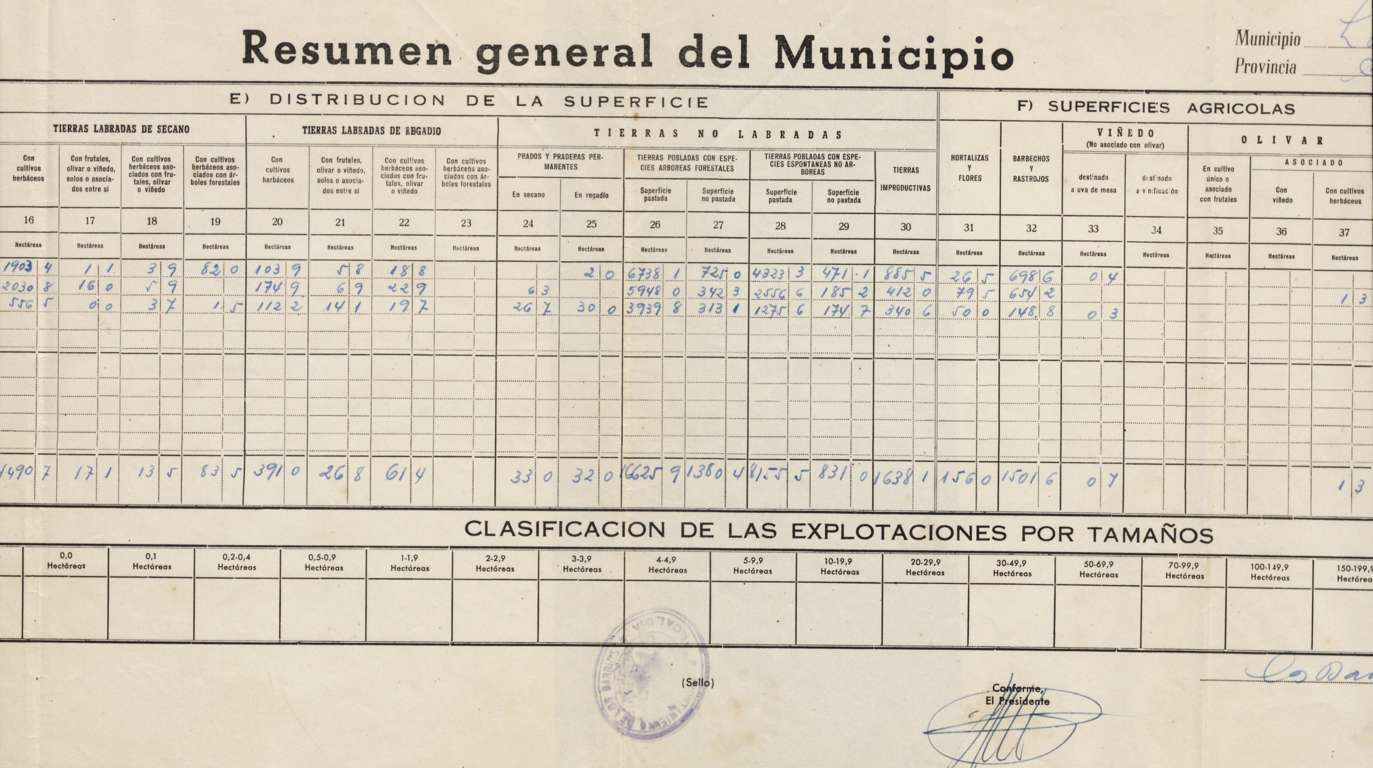 Resumen general del Municipio
Municipio
Provincia
E) DISTRIBUCION DE LA SUPERFICIE
F) SUPERFICIES AGRICOLAS
TIERRAS LABRADAS DE SECANO
TIERRAS LABRADAS DE REGADIO
TIERRAS NO LABRADAS
VIÑEDO
(No asociado con olivar)
OLIVAR
ASOCIADO
Con cultivos herbáceos
Con frutales, olivar o viñedo, solos o asocia- dos entre sí
Con cultivos herbáceos aso- ciados con fru- tales, olivar o viñedo
Con cultivos herbáceos aso- ciados con ár- boles forestales
Con cultivos herbáceos
Con frutales, olivar o viñedo, solos o asocia- dos entre sí
Con cultivos herbáceos aso- ciados con fru- tales, olivar o viñedo
Con cultivos herbáceos aso- ciados con ár- boles forestales
PRADOS Y PRADERAS PER- MANENTES
En secano
En regadío
TIERRAS POBLADAS CON ESPE- CIES ARBOREAS FORESTALES
Superficie pastada
Superficie no pastada
TIERRAS POBLADAS CON ESPE- CIES ESPONTANEAS NO AR- BOREAS
Superficie pastada
Superficie no pastada
TIERRAS IMPRODUCTIVAS
HORTALIZAS Y FLORES
BARBECHOS Y RASTROJOS
destinado a uva de mesa
destinado a vinificación
En cultivo único o asociado con frutales
Con viñedo
Con cultivos herbáceos
16 17 18 19 20 21 22 23 24 25 26 27 28 29 30 31 32 33 34 35 36 37
Hectáreas Hectáreas Hectáreas Hectáreas Hectáreas Hectáreas Hectáreas Hectáreas Hectáreas Hectáreas Hectáreas Hectáreas Hectáreas Hectáreas Hectáreas Hectáreas Hectáreas Hectáreas Hectáreas Hectáreas Hectáreas Hectáreas
1903 4 1 1 3 9 82 0 103 9 5 8 18 8 2 0 6738 1 725 0 4323 3 471 1 885 5 26 5 698 6 0 4
2030 8 16 0 5 9 174 9 6 9 22 9 6 3 5948 0 342 3 2556 6 185 2 412 0 79 5 654 2 1 3
556 5 0 0 3 7 1 5 112 2 14 1 19 7 26 7 30 0 3939 8 313 1 1275 6 174 7 340 6 50 0 148 8 0 3
4490 7 17 1 13 5 83 5 391 0 26 8 61 4 33 0 32 0 16625 9 1380 4 8155 5 831 0 1638 1 156 0 1501 6 0 7 1 3
CLASIFICACION DE LAS EXPLOTACIONES POR TAMAÑOS
0,0 Hectáreas
0,1 Hectáreas
0,2-0,4 Hectáreas
0,5-0,9 Hectáreas
1-1,9 Hectáreas
2-2,9 Hectáreas
3-3,9 Hectáreas
4-4,9 Hectáreas
5-9,9 Hectáreas
10-19,9 Hectáreas
20-29,9 Hectáreas
30-49,9 Hectáreas
50-69,9 Hectáreas
70-99,9 Hectáreas
100-149,9 Hectáreas
150-199,9 Hectáreas
ALCALDIA
(Sello)
Conforme,
El Presidente